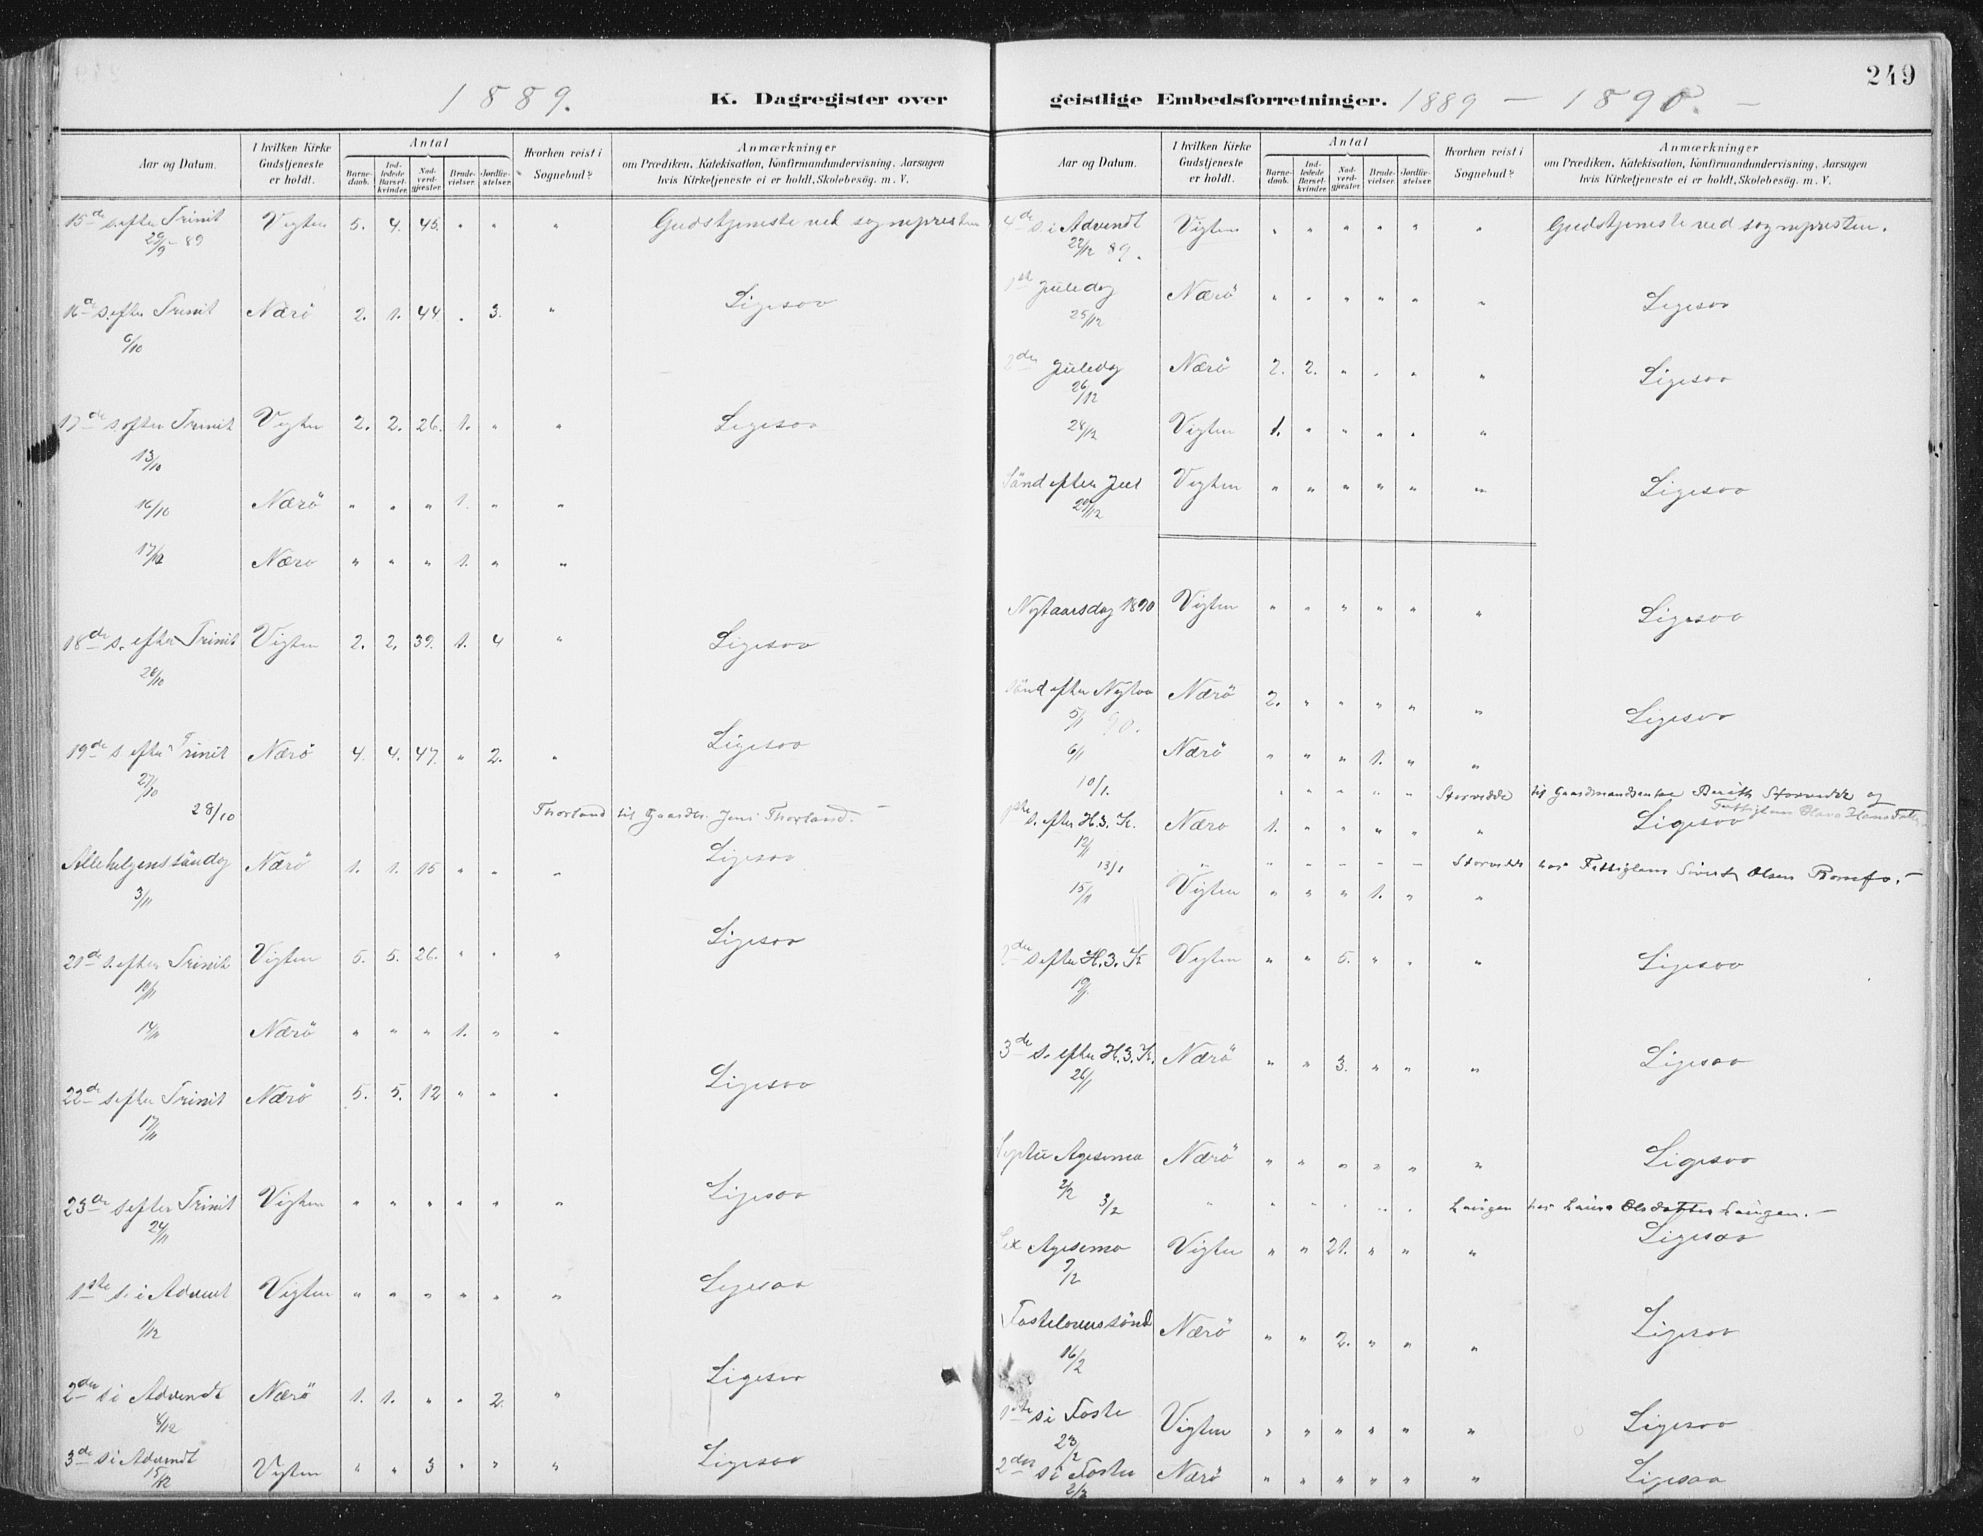 249
1889.
K. Dagregister over
geistlige Embedsforretninger.
1889 – 1890. –
Aar og Datum.
I hvilken Kirke Gudstjeneste er holdt.
Antal
Barnedaab.
Indledede Barselkvinder.
Nadverdgjester.
Brudevielser.
Jordfæstelser.
Hvorhen reist i Sognebud?
Anmærkninger
om Prædiken, Katekisation, Konfirmandundervisning, Aarsagen
hvis Kirketjeneste ei er holdt, Skolebesøg. m. V.
15de s. efter Trinit Vigten 5. 4. 45. " " " Gudstjeneste ved sognepresten
29/9 - 89
16de s. efter Trinit Nærö 2. 1. 44 " 3. " Ligesaa
6/10
17de s. efter Trinit Vigten 2. 2. 26. 1. " " Ligesaa
13/10
16/10 Nærö " " " 1. " "
17/10 Nærö " " " 1. " "
18de s. efter Trinit Vigten 2. 2. 39. 1. 4 " Ligesaa
20/10
19de s. efter Trinit Nærö 4. 4. 47. " 2. " Ligesaa
27/10
28/10 Thorland til Gaardbr. Jens Thorland. –
Allehelgens söndag Nærö 1. 1. 15 " " " Ligesaa
3/11
21de s. efter Trinit Vigten 5. 5. 26. " " " Ligesaa
10/11
14/11 Nærö " " " 1. " "
22de s efter Trinit Nærö 5. 5. 12 " " " Ligesaa
17/11
23de s efter Trinit Vigten " " " " " " Ligesaa
24/11
1ste s. i Advent Vigten " " " " " " Ligesaa
1/12
2den s i Advendt Nærö 1. 1. " " 2. " Ligesaa
8/12
3de s i Advendt Vigten " " 3 " " " Ligesaa
15/12
Aar og Datum.
I hvilken Kirke Gudstjeneste er holdt.
Antal
Barnedaab.
Indledede Barselkvinder.
Nadverdgjester.
Brudevielser.
Jordfæstelser.
Hvorhen reist i Sognebud?
Anmærkninger
om Prædiken, Katekisation, Konfirmandundervisning, Aarsagen
hvis Kirketjeneste ei er holdt, Skolebesøg. m. V.
4de s i Advendt Vigten " " " " " " Gudstjeneste ved sognepresten.
22/12 89.
1ste Juledag Nærö " " " " " " Ligesaa
25/12
2den Juledag Nærö 2. 2. " " " " Ligesaa
26/12
28/12 Vigten 1. " " " " "
Sönd efter Jul Vigten " " " " " " Ligesaa
29/12
Nytaarsdag 1890 Vigten " " " " " " Ligesaa
Sönd efter Nytaa Nærö 2. " " " " " Ligesaa
5/1 90.
6/1 Nærö " " " 1. " "
10/1. " " " " " Storvedde til Gaardmandsenke Storvedde og
1ste s. efter H. 3. K. Nærö 1. " " " " " Ligesaa
12/1
13/1 " " " – – – Storvedde hos Fattiglem Sivert Olsen –
15/1 Vigten " " " 1. " "
2den s efter H. 3. K Vigten " " 5. " " " Ligesaa
19/1
3de s. efter H. 3. K. Nærö " " 3. " " " Ligesaa
26/1
Septu Agesema Nærö " " " " " " Ligesaa
2/2
3/2 " " " " " " Laugen hos Olsdatter Laugen. –
Sex Agesema Vigten " " 21. " " " Ligesaa
9/2
Fastelavnssönd Nærö " " 2. " " " Ligesaa
16/2
1ste s i Faste Vigten " " " " " " Ligesaa
23/2
2den s i Faste Nærö " " " " " " Ligesaa
2/3